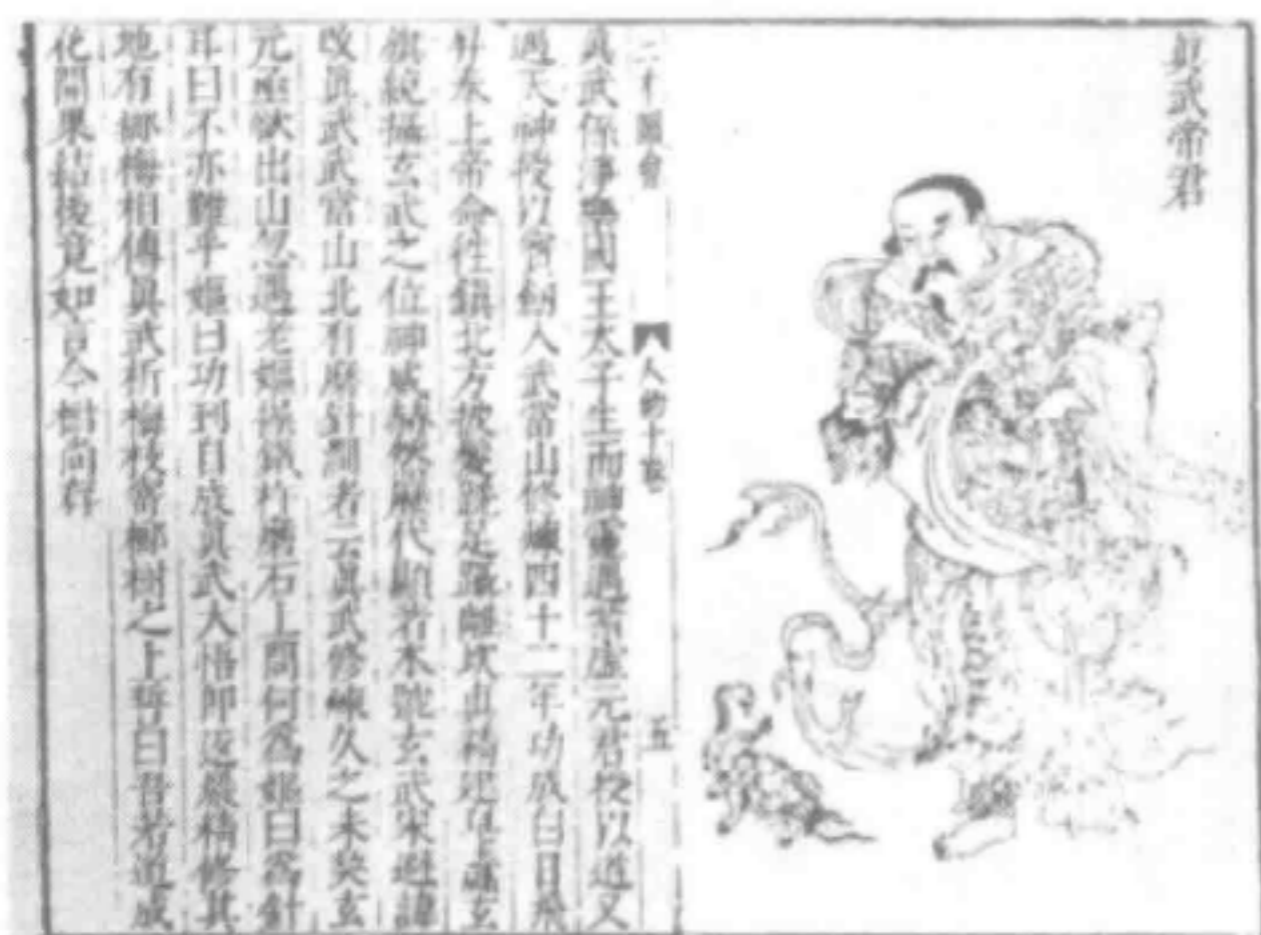 真武帝君
三才圖會
人物十卷
五
真武係淨樂國王太子生而神靈遇紫虛元君授以道又
遇天神授以寶劍入武當山修煉四十二年功成白日飛
升奉上帝命往鎮北方披髮跣足躡離坎真精建皂纛玄
旗統攝玄武之位神威赫然歷代顯著本號玄武宋避諱
改真武武當山北有磨針澗者云真武修煉久之未契玄
元亟欲出山忽遇老嫗操鐵杵磨石上問何為嫗曰為針
耳曰不亦難乎嫗曰功到自成真武大悟即返巖精修其
地有榔梅相傳真武折梅枝寄榔樹之上誓曰吾若道成
花開果結後竟如言今樹尚存